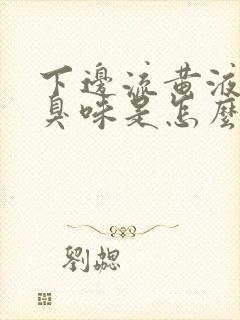 下邊流黃液
臭味是怎麼
劉勰